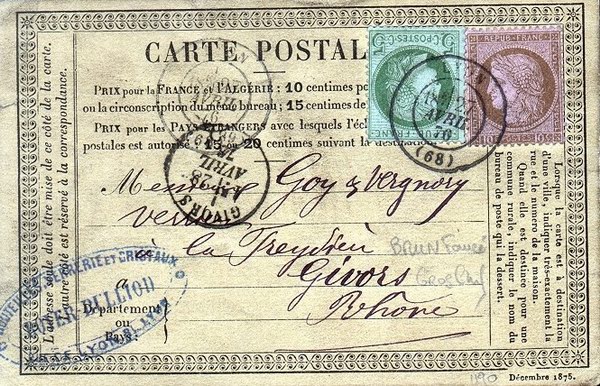 CARTE POSTALE
PRIX pour la FRANCE et l'ALGÉRIE: 10 centimes po
ou la circonscription du même bureau; 15 centimes de
PRIX pour les PAYS ÉTRANGERS avec lesquels l'éch
postales est autorisé 15 ou 20 centimes suivant la destination
5 C. POSTES 5 C.
REPUB. FRANC.
10 C. 10 C.
27
AVRIL
76
(68)
GIVORS
28
AVRIL
76
Messieurs Goy & Vergnory
verriers
à la Freydière
Givors
Rhône
à
Département
ou
Pays
BRUN Foncé
L'adresse seule doit être mise de ce côté de la carte.
L'autre côté est réservé à la correspondance.
Lorsque la carte est à destination
d'une ville, indiquer très-exactement la
rue et le numéro de la maison.
Quand elle est destinée pour une
commune rurale, indiquer le nom du
bureau de poste qui la dessert.
VERRERIE ET CRISTAUX
BULLIOD
LYON
1190
Décembre 1875.